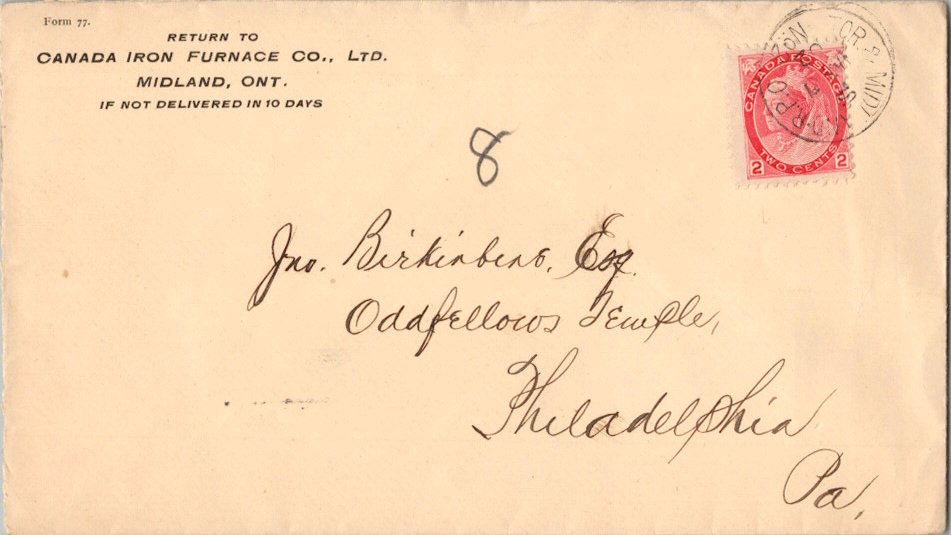 Form 77.
RETURN TO
CANADA IRON FURNACE CO., LTD.
MIDLAND, ONT.
IF NOT DELIVERED IN 10 DAYS
TOR. & MIDL
R.P.O.
CANADA POSTAGE
2 TWO CENTS 2
8
Jno. Birkinbine, Esq.
Oddfellows Temple,
Philadelphia
Pa,